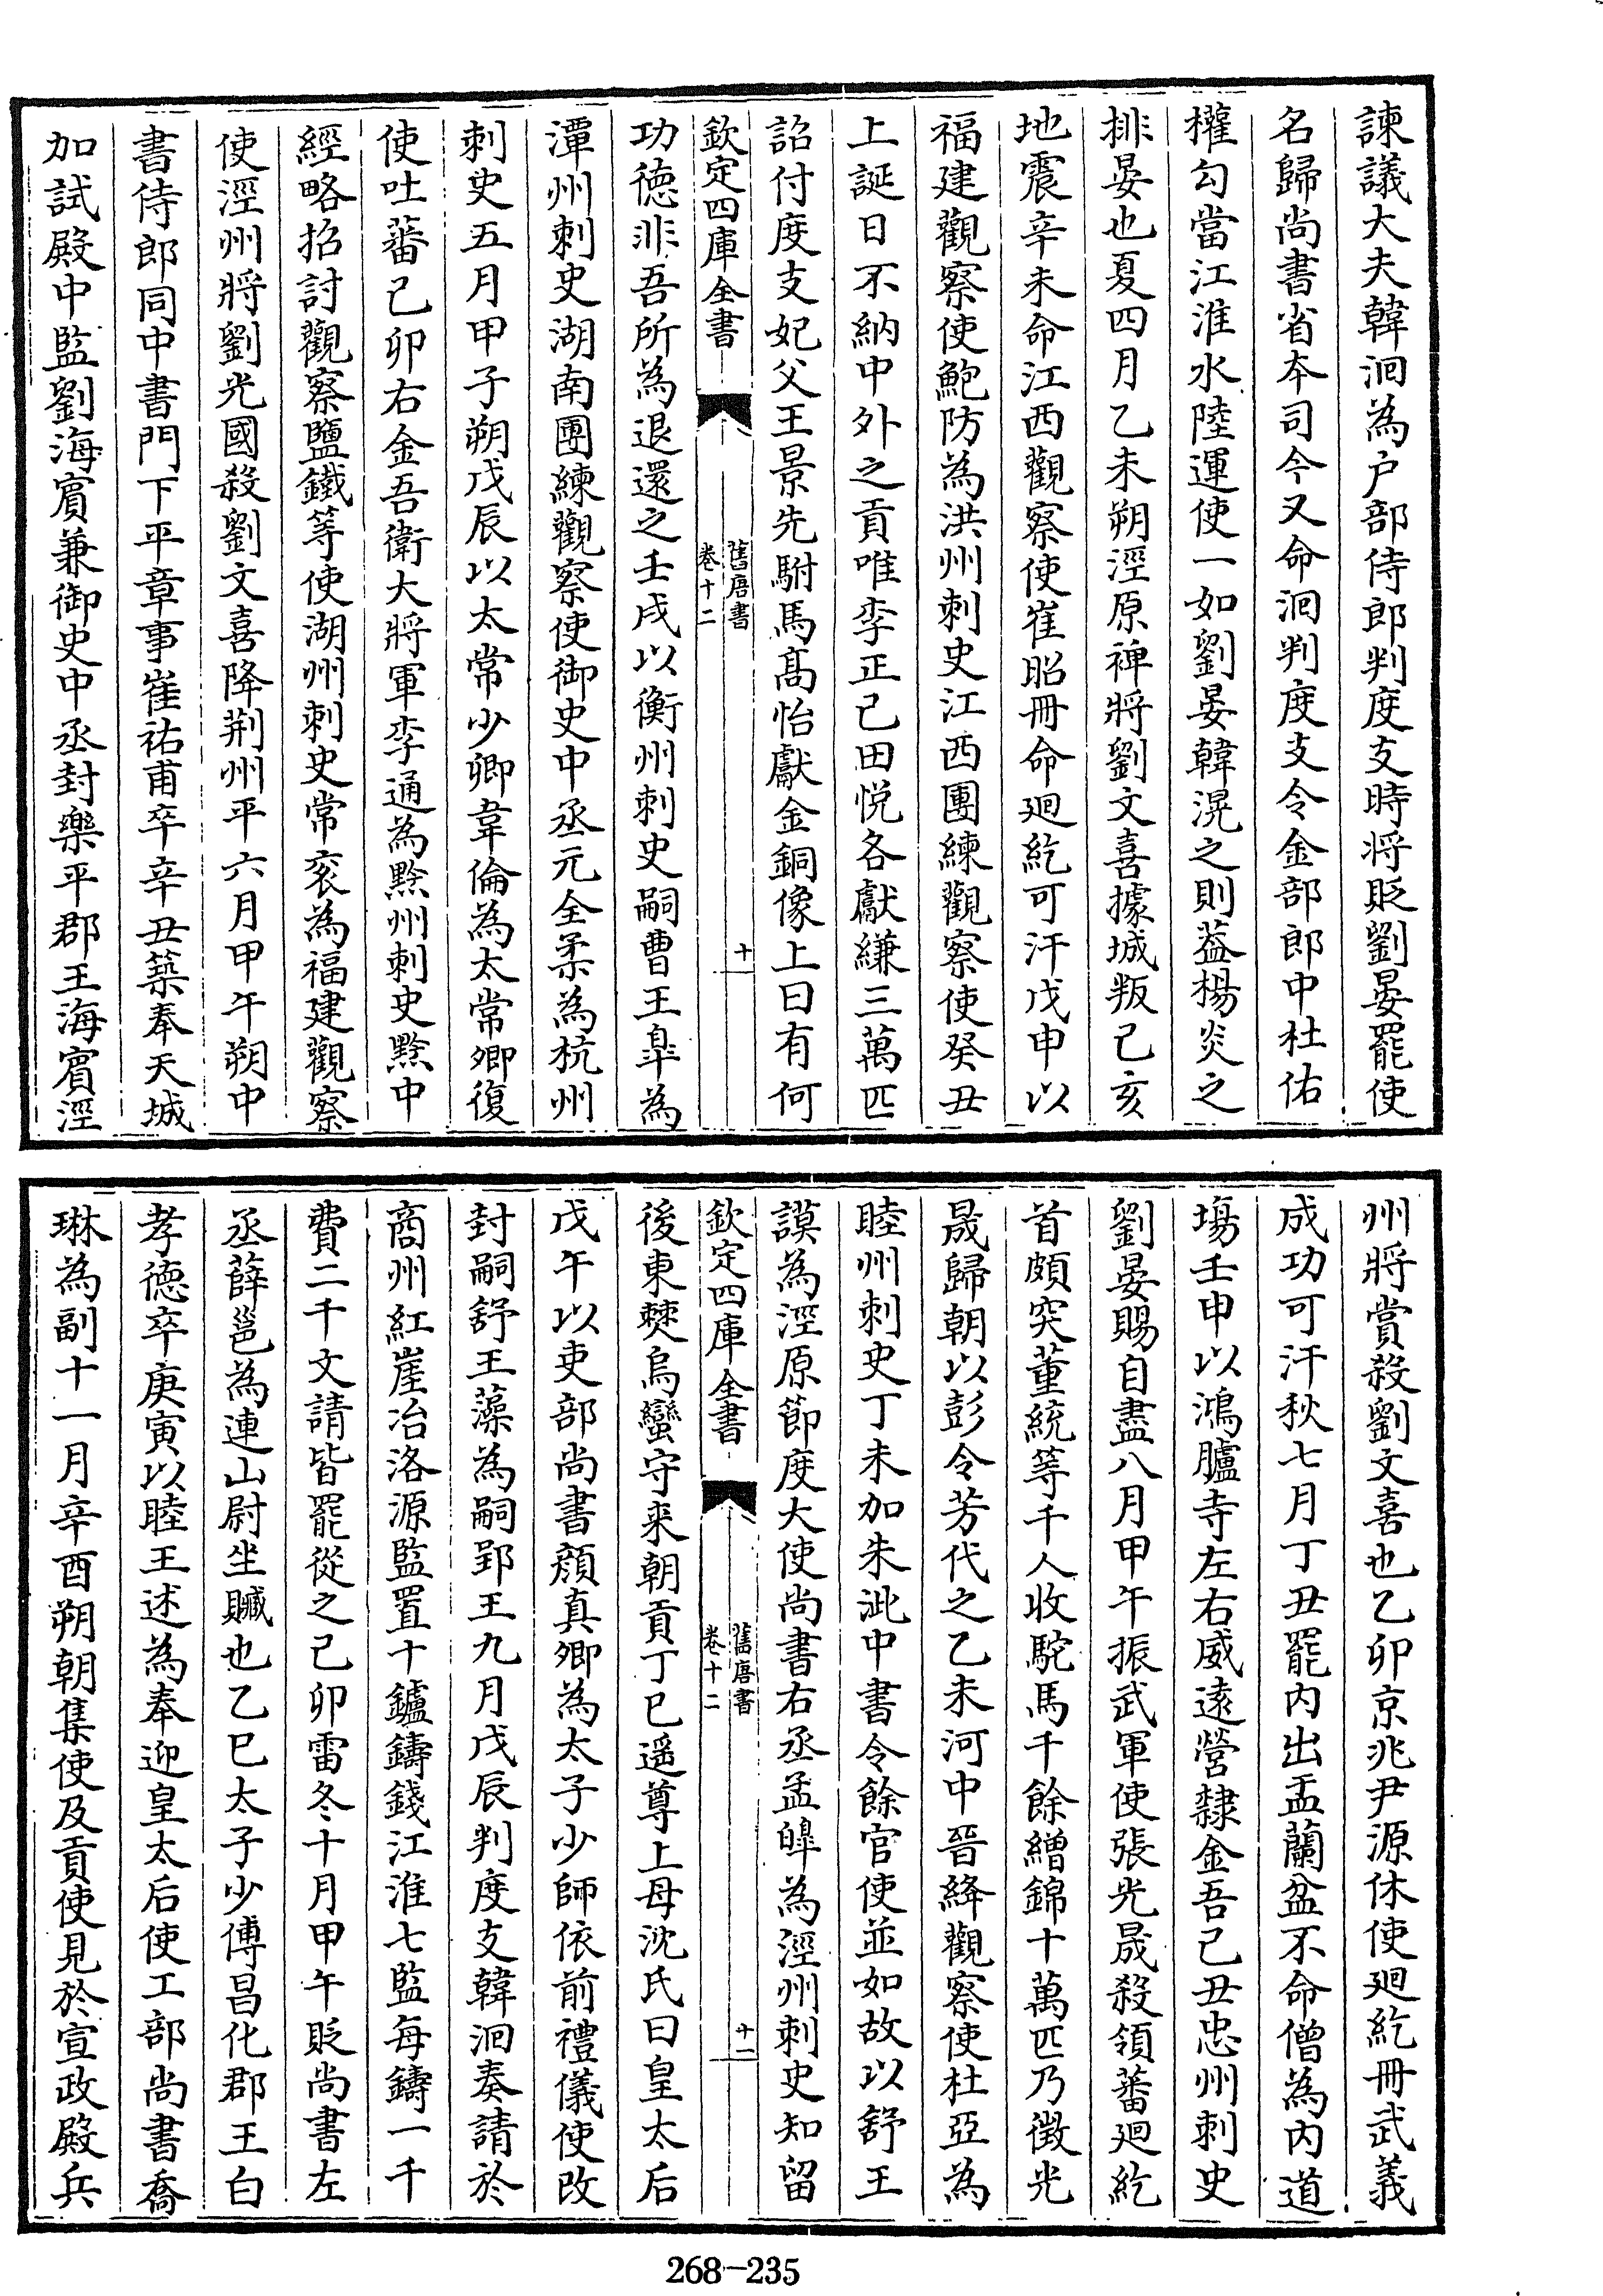 諫議大夫韓洄為户部侍郎判度支時将貶劉晏罷使
名歸尚書省本司今又命洄判度支令金部郎中杜佑
權勾當江淮水陸運使一如劉晏韓滉之則葢楊炎之
排晏也夏四月乙未朔涇原裨將劉文喜據城叛己亥
地震辛未命江西觀察使崔昭冊命廻紇可汗戊申以
福建觀察使鮑防為洪州刺史江西團練觀察使癸丑
上誕日不納中外之貢唯李正己田悦各獻縑三萬匹
詔付度支妃父王景先駙馬髙怡獻金銅像上曰有何
欽定四庫全書
舊唐書
卷十二
十
功德非吾所為退還之壬戌以衡州刺史嗣曹王皐為
潭州刺史湖南團練觀察使御史中丞元全柔為杭州
刺史五月甲子朔戊辰以太常少卿韋倫為太常卿復
使吐蕃己卯右金吾衛大將軍李通為黔州刺史黔中
經略招討觀察鹽鐵等使湖州刺史常衮為福建觀察
使涇州將劉光國殺劉文喜降荆州平六月甲午朔中
書侍郎同中書門下平章事崔祐甫卒辛丑築奉天城
加試殿中監劉海賓兼御史中丞封樂平郡王海賓涇
州將賞殺劉文喜也乙卯京兆尹源休使廻紇冊武義
成功可汗秋七月丁丑罷内出盂蘭盆不命僧為内道
塲壬申以鴻臚寺左右威逺營隸金吾己丑忠州刺史
劉晏賜自盡八月甲午振武軍使張光晟殺領蕃廻紇
首頗突董統等千人收駝馬千餘繒錦十萬匹乃徴光
晟歸朝以彭令芳代之乙未河中晉絳觀察使杜亞為
睦州刺史丁未加朱泚中書令餘官使並如故以舒王
謨為涇原節度大使尚書右丞孟皥為涇州刺史知留
欽定四庫全書
舊唐書
卷十二
十一
後東㸑烏蠻守来朝貢丁巳遥尊上母沈氏曰皇太后
戊午以吏部尚書顔真卿為太子少師依前禮儀使改
封嗣舒王藻為嗣郢王九月戊辰判度支韓洄奏請於
商州紅崖冶洛源監置十鑪鑄錢江淮七監每鑄一千
費二千文請皆罷從之己卯雷冬十月甲午貶尚書左
丞薛邕為連山尉坐贓也乙巳太子少傅昌化郡王白
孝德卒庚寅以睦王述為奉迎皇太后使工部尚書喬
琳為副十一月辛酉朔朝集使及貢使見於宣政殿兵
268-235